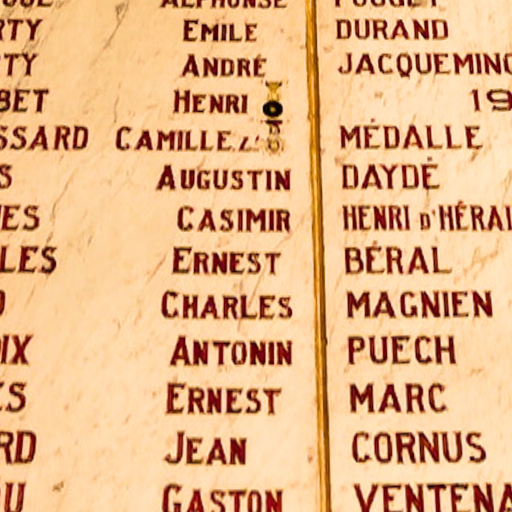 RTY EMILE DURAND
TY ANDRÉ JACQUEMIN
BET HENRI 19
SSARD CAMILLE MÉDALLE
S AUGUSTIN DAYDÉ
ES CASIMIR HENRI D'HÉRAL
LES ERNEST BÉRAL
CHARLES MAGNIEN
IX ANTONIN PUECH
ES ERNEST MARC
RD JEAN CORNUS
U GASTON VENTENA